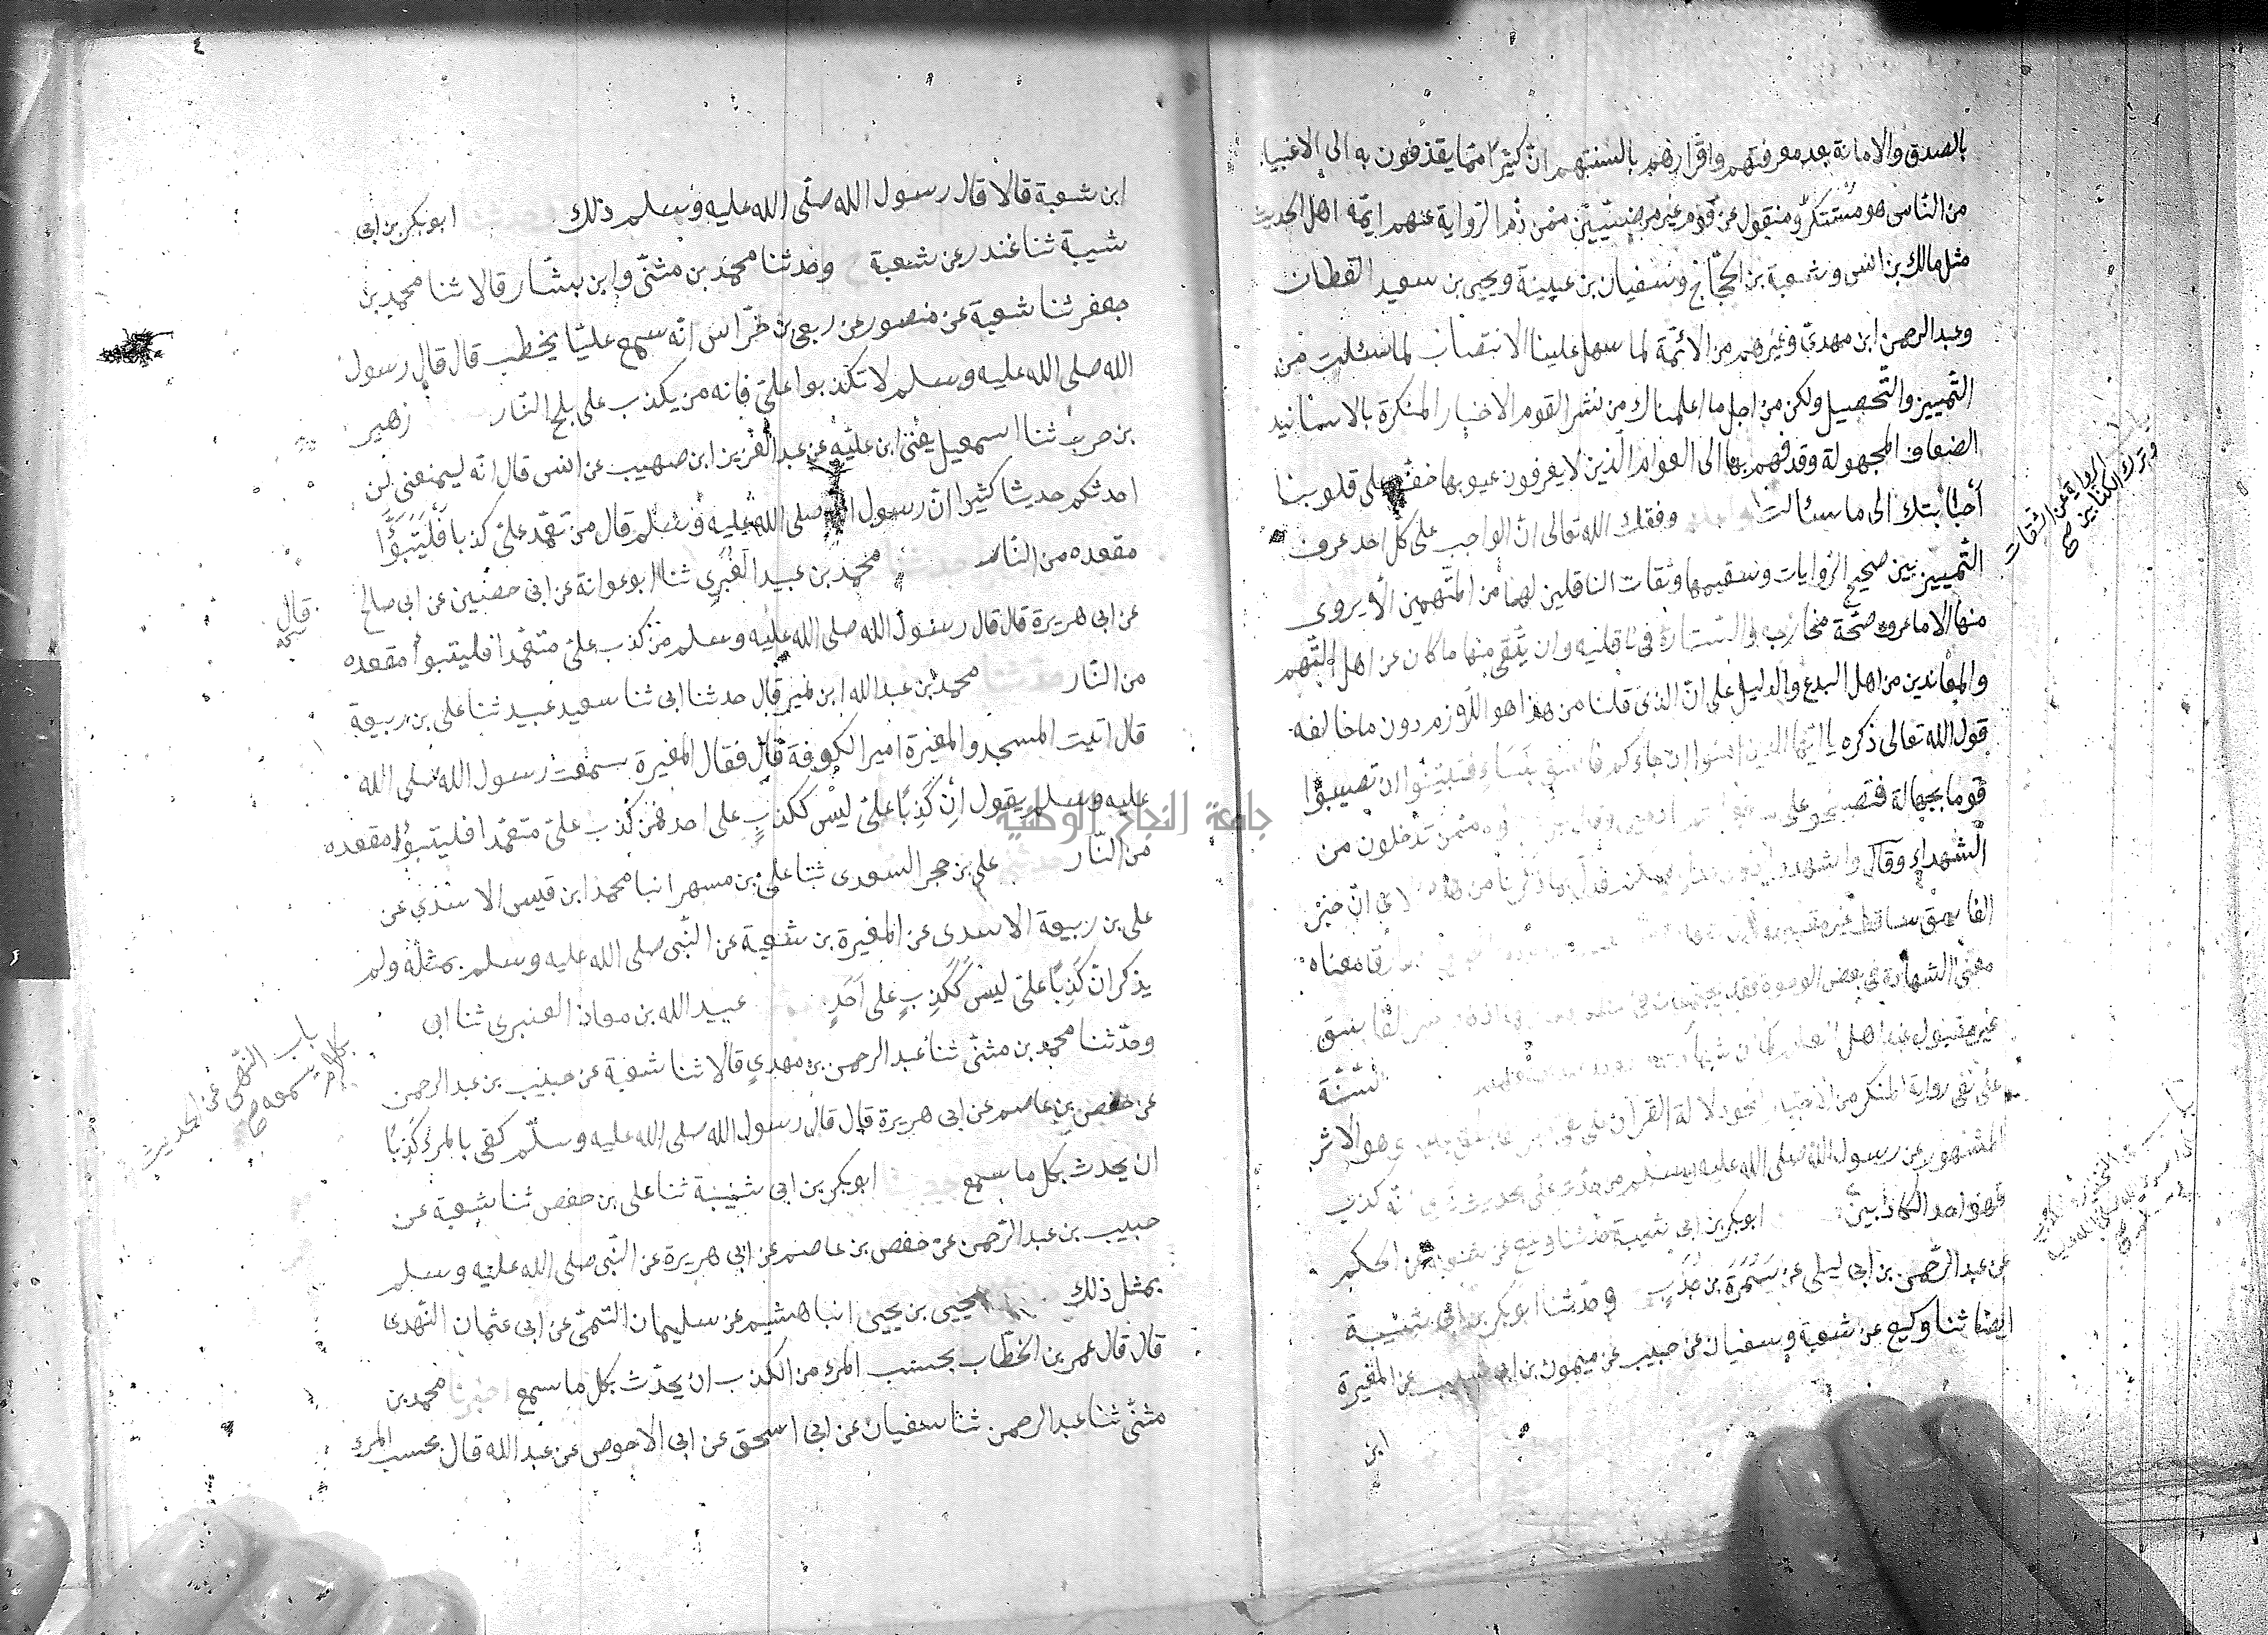 بالصدق والامانة بعد معرفتهم واقرارهم بالسنتهم ان كثيرا مما يقذفون به الى الاغبيا
من الناس هو مستنكر ومنقول عن قوم غير مرضيين ممن ذم الرواية عنهم ايمة اهل الحديث
مثل مالك بن انس وشعبة بن الحجاج وسفيان بن عيينة ويحيى بن سعيد القطان
وعبد الرحمن ابن مهدى وغيرهم من الائمة لما سهل علينا الانتصاب لما سئلت من
التمييز والتحصيل ولكن من اجل ما اعلمناك من نشر القوم الاخبار المنكرة بالاسانيد
الضعاف المجهولة وقذفهم بها الى العوام الذين لا يعرفون عيوبها خف على قلوبنا
اجابتك الى ما سئالت وفقك الله تعالى ان الواجب على كل احد عرف
التمييز بين صحيح الروايات وسقيمها وثقات الناقلين لها من المتهمين الا يروى
منها الا ما عرف صحة مخارجه والستارة فى ناقليه وان يتقى منها ما كان عن اهل التهم
والمعاندين من اهل البدع والدليل على ان الذى قلنا من هذا هو اللازم دون ما خالفه
قول الله تعالى ذكره يا ايها الذين امنوا ان جاءكم فاسق بنباء فتبينوا ان تصيبوا
قوما بجهالة فتصبحوا على ممن ترضون من
الشهداء وقال واشهدوا فدل بما ذكرنا من هذه ان خبر
الفاسق ساقط غير مقبول معناه
معنى الشهادة فى بعض الوجوه فقد يجتمعان فى الفاسق
غير مقبول عند اهل العلم كما ان شهادته السنة
على نفى رواية المنكر من الاخبار كنحو دلالة القران على نفى خبر الفاسق وهو الاثر
المشهور عن رسول الله صلى الله عليه وسلم من حدث عنى بحديث يرى انه كذب
فهو احد الكاذبين ابو بكر بن ابى شيبة حدثنا وكيع عن شعبة عن الحكم
عن عبد الرحمن بن ابى ليلى عن سمرة بن جندب وحدثنا ابو بكر بن ابى شيبة
ايضا ثنا وكيع عن شعبة وسفيان عن حبيب عن ميمون بن ابى شبيب عن المغيرة
ابن
الرواية عن الثقات
وترك الكذابين صح
٤
ابن شعبة قالا قال رسول الله صلى الله عليه وسلم ذلك ابو بكر بن ابى
شيبة ثنا غندر عن شعبة وحدثنا محمد بن مثنى وابن بشار قالا ثنا محمد بن
جعفر ثنا شعبة عن منصور عن ربعى بن خراس انه سمع عليا يخطب قال قال رسول
الله صلى الله عليه وسلم لا تكذبوا على فانه من يكذب على يلج النار زهير
بن حرب ثنا اسمعيل يعنى ابن علية عن عبد العزيز ابن صهيب عن انس قال انه ليمنعنى ان
احدثكم حديثا كثيرا ان رسول الله صلى الله عليه وسلم قال من تعمد على كذبا فليتبوأ
مقعده من النار محمد بن عبيد الغبرى ثنا ابو عوانة عن ابى حصين عن ابى صالح
عن ابى هريرة قال قال رسول الله صلى الله عليه وسلم من كذب على متعمدا فليتبوأ مقعده
من النار محمد بن عبد الله ابن نمير قال حدثنا ابى ثنا سعيد عبيد ثنا على بن ربيعة
قال اتيت المسجد والمغيرة امير الكوفة قال فقال المغيرة سمعت رسول الله صلى الله
عليه وسلم يقول ان كذبا على ليس ككذب على احد فمن كذب على متعمدا فليتبوأ مقعده
من النار على بن حجر السعدى ثنا على بن مسهر انبا محمد ابن قيس الاسدي عن
على بن ربيعة الاسدى عن المغيرة بن شعبة عن النبى صلى الله عليه وسلم بمثله ولم
يذكر ان كذبا على ليس ككذب على احد عبيد الله بن معاذ العنبرى ثنا ابى
وحدثنا محمد بن مثنى ثنا عبد الرحمن بن مهدي قالا ثنا شعبة عن حبيب بن عبد الرحمن
عن حفص بن عاصم عن ابى هريرة قال قال رسول الله صلى الله عليه وسلم كفى بالمرء كذبا
ان يحدث بكل ما سمع ابو بكر بن ابى شيبة ثنا على بن حفص ثنا شعبة عن
حبيب بن عبد الرحمن عن حفص بن عاصم عن ابى هريرة عن النبى صلى الله عليه وسلم
بمثل ذلك يحيى بن يحيى انبا هشيم عن سليمان التيمى عن ابى عثمان النهدى
قال قال عمر بن الخطاب بحسب المرء من الكذب ان يحدث بكل ما سمع اخبرنا محمد بن
مثنى ثنا عبد الرحمن ثنا سفيان عن ابى اسحق عن ابى الاحوص عن عبد الله قال بحسب المرء
قال
باب النهى عن الحديث
بكل ما سمعه صح
جامعة النجاح الوطنية